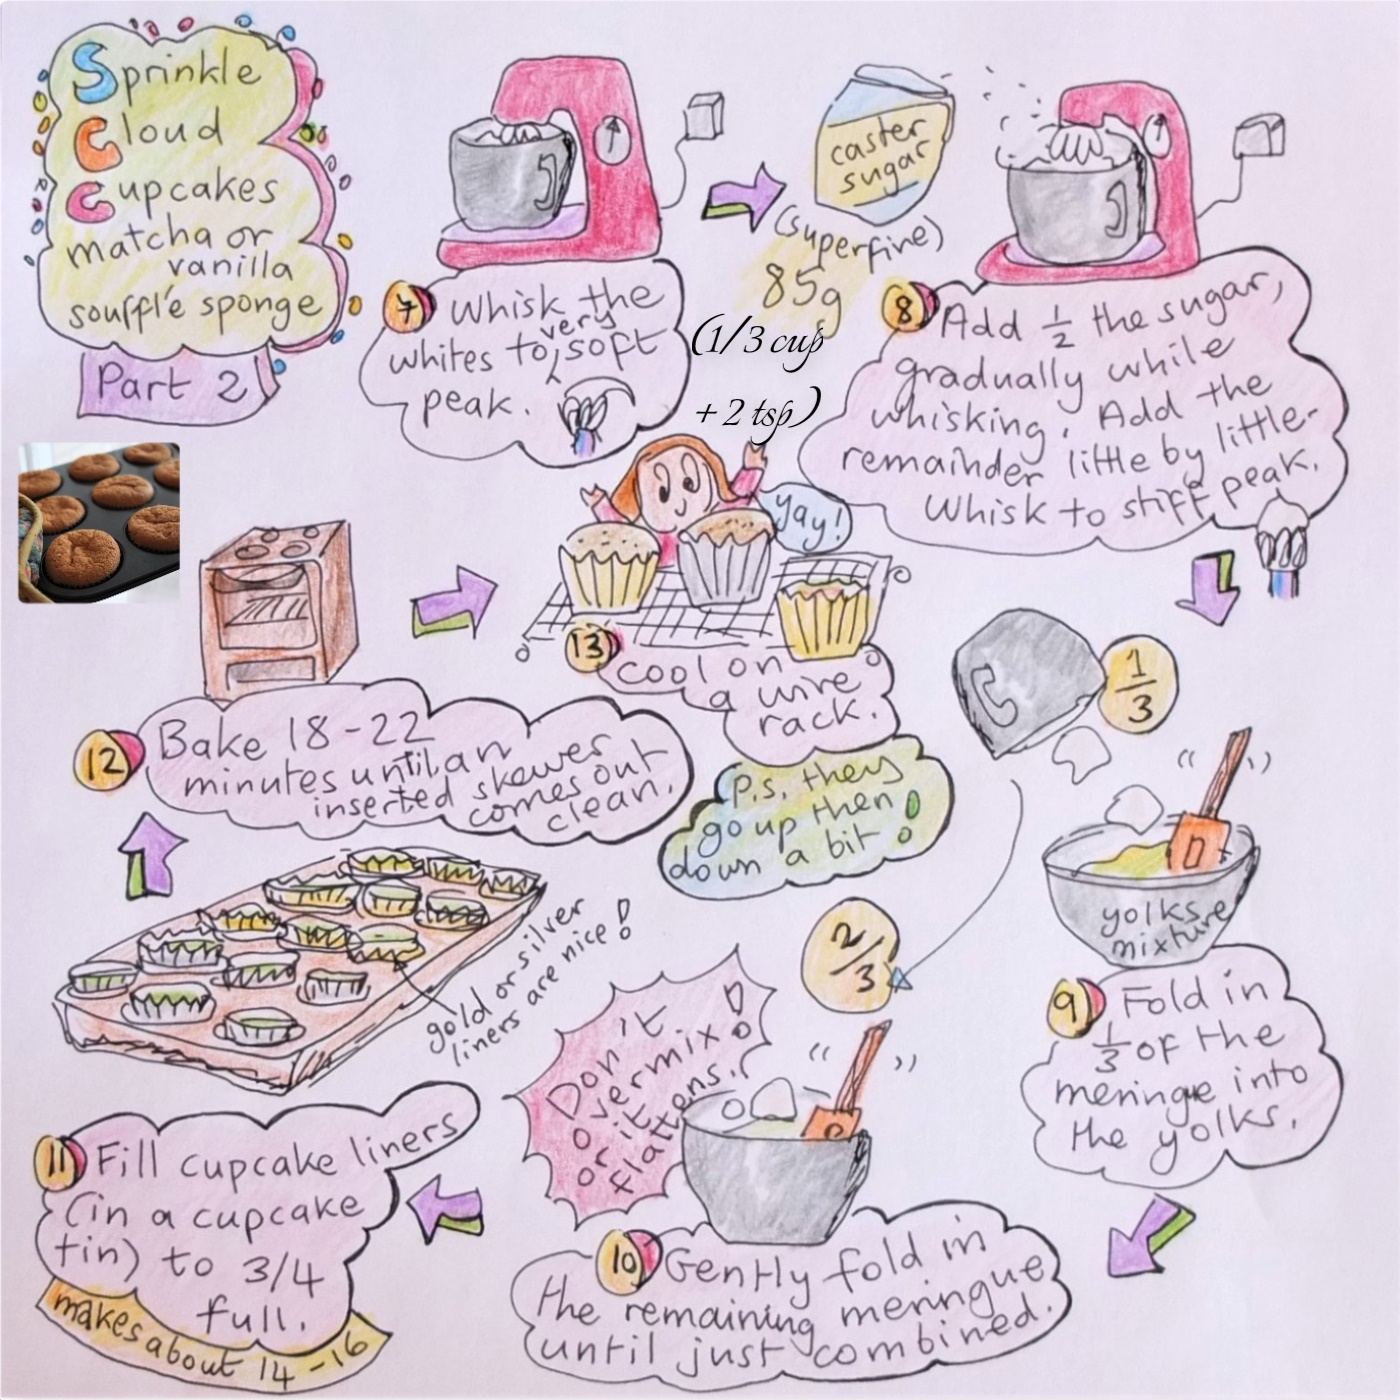 Sprinkle
Cloud
Cupcakes
matcha or
vanilla
soufflé sponge
Part 2
7 Whisk the
very
whites to soft
peak.
caster
sugar
(superfine)
85g
(1/3 cup
+ 2 tsp)
8 Add 1/2 the sugar,
gradually while
whisking. Add the
remainder little by little-
Whisk to stiff peak.
1/3
yolks
mixture
9 Fold in
1/3 of the
meringue into
the yolks.
2/3
Don't
overmix!
or it
flattens.
10 Gently fold in
the remaining meringue
until just combined.
11 Fill cupcake liners
(in a cupcake
tin) to 3/4
full.
makes about 14-16
gold or silver
liners are nice!
12 Bake 18-22
minutes until an
inserted skewer
comes out
clean.
yay!
13 cool on
a wire
rack.
P.S. they
go up then
down a bit!